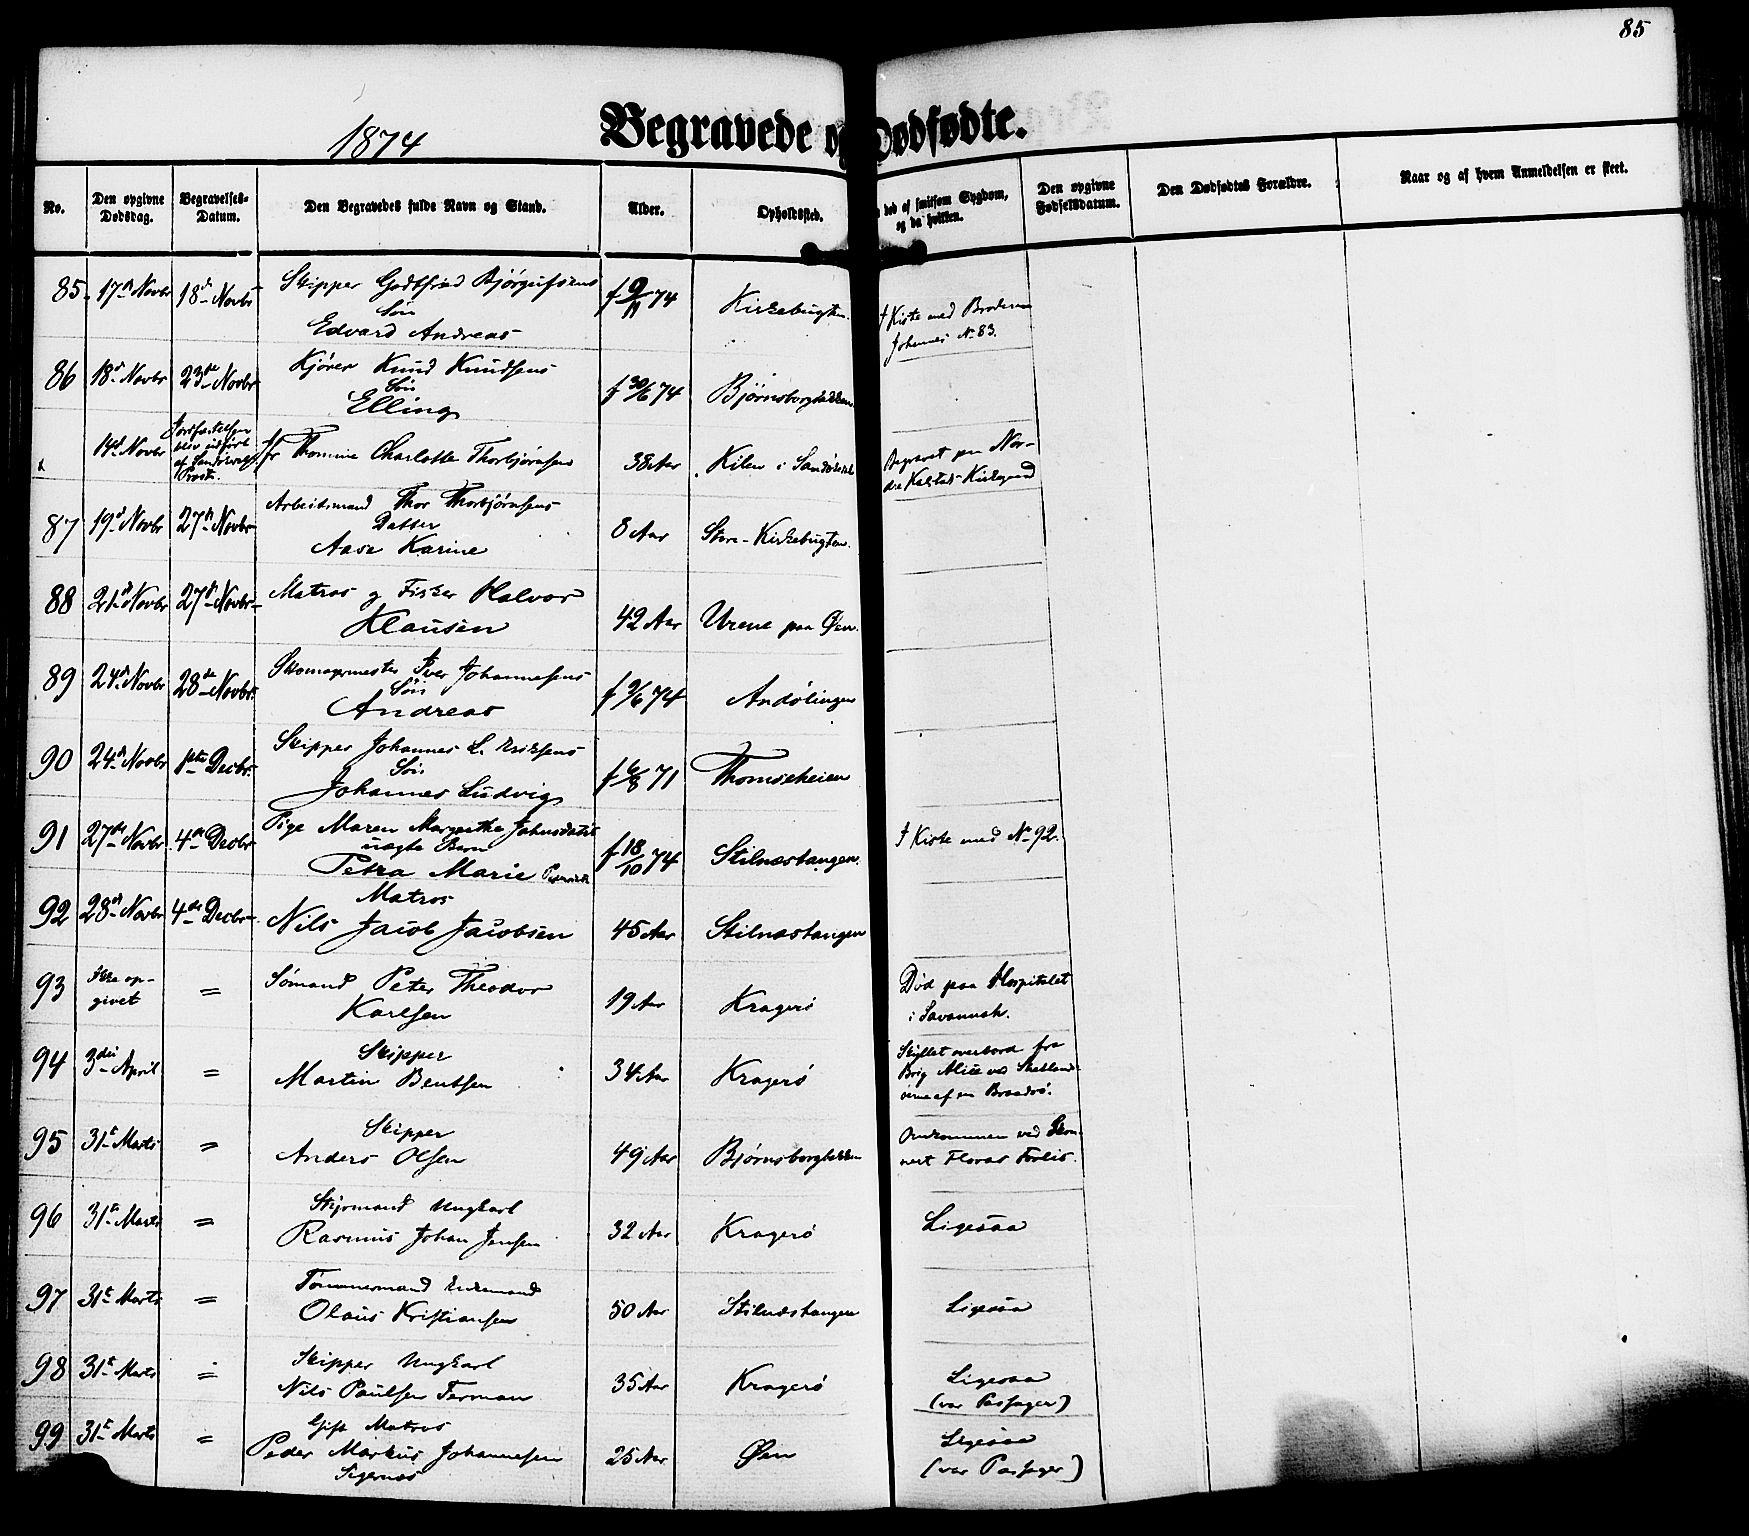 85
1874
Begravede og Dødfødte.
No.
Den opgivne Dødsdag.
Begravelses-Datum.
Den Begravedes fulde Navn og Stand.
Alder.
Opholdssted.
død af smitsom Sygdom, og da hvilken.
Den opgivne Fødselsdatum.
Den Dødfødtes Forældre.
Naar og af hvem Anmeldelsen er skeet.
85. 17d Novbr 18d Novbr Skipper Godtfried
Søn
Edvard Andreas f 9/11 74 Kirkebugten. I Kiste med Broderen
Johannes No 83.
86 18d Novbr 23de Novbr Kjører Knud Knudsens
Søn
Elling f 30/6 74 Bjørnsborgbakken
14d Novbr Jordfæstelsen
blev udført
af
Provst. Thomine Charlotte Thorbjørnsen 38 Aar Kilen i Begravet paa Nor-
dre Kirkegaard
87 19d Novbr 27d Novbr Arbeidsmand Thor Thorbjørnsens
Datter
Aase Karine 8 Aar Store-Kirkebugten.
88 21d Novbr 27d Novbr Matros og Fisker Halvor
Klausen 42 Aar Urene paa Øen.
89 24d Novbr 28de Novbr. Skomagermester Iver Johannesens
Søn
Andreas f 9/6 74 Andølingen
90 24d Novbr 1ste Decbr. Skipper Johannes L. Eriksens
Søn
Johannes Ludvig f 6/8 71 Thomseheien
91 27de Novbr 4de Decbr Pige Maren Margrethe Johnsdatt
uægte Barn
Petra Marie f 18/10 74 Stilnestangen. I Kiste med No 92.
92 28d Novbr 4de Decbr Matros
Nils Jacob Jacobsen 45 Aar Stilnestangen
93 Ikke op-
givet = Sømand Peter Theodor
Karlsen 19 Aar Kragerø Død paa Hospitalet
i Savannah.
94 3die April = Skipper
Martin Bentsen 34 Aar Kragerø Skyllet overbord fra
Brig Alice ved Shetlands-
øerne af en Braadsø.
95 31t Marts = Skipper
Anders Olsen 49 Aar Bjørnsborgbakken Omkommen ved Skon-
nert Floras Forlis.
96 31t Marts = Styrmand Ungkarl
Rasmus Johan Jensen 32 Aar Kragerø Ligesaa
97 31t Marts = Tømmermand Enkemand
Olaus Kristiansen 50 Aar Stilnæstangen Ligesaa
98 31t Marts = Skipper Ungkarl
Nils Paulsen Ferman 35 Aar Kragerø Ligesaa
(var Passager)
99 31t Marts = Gift Matros
Peder Markus Johannesen
Sigernes 25 Aar Øen Ligesaa
(var Passager)